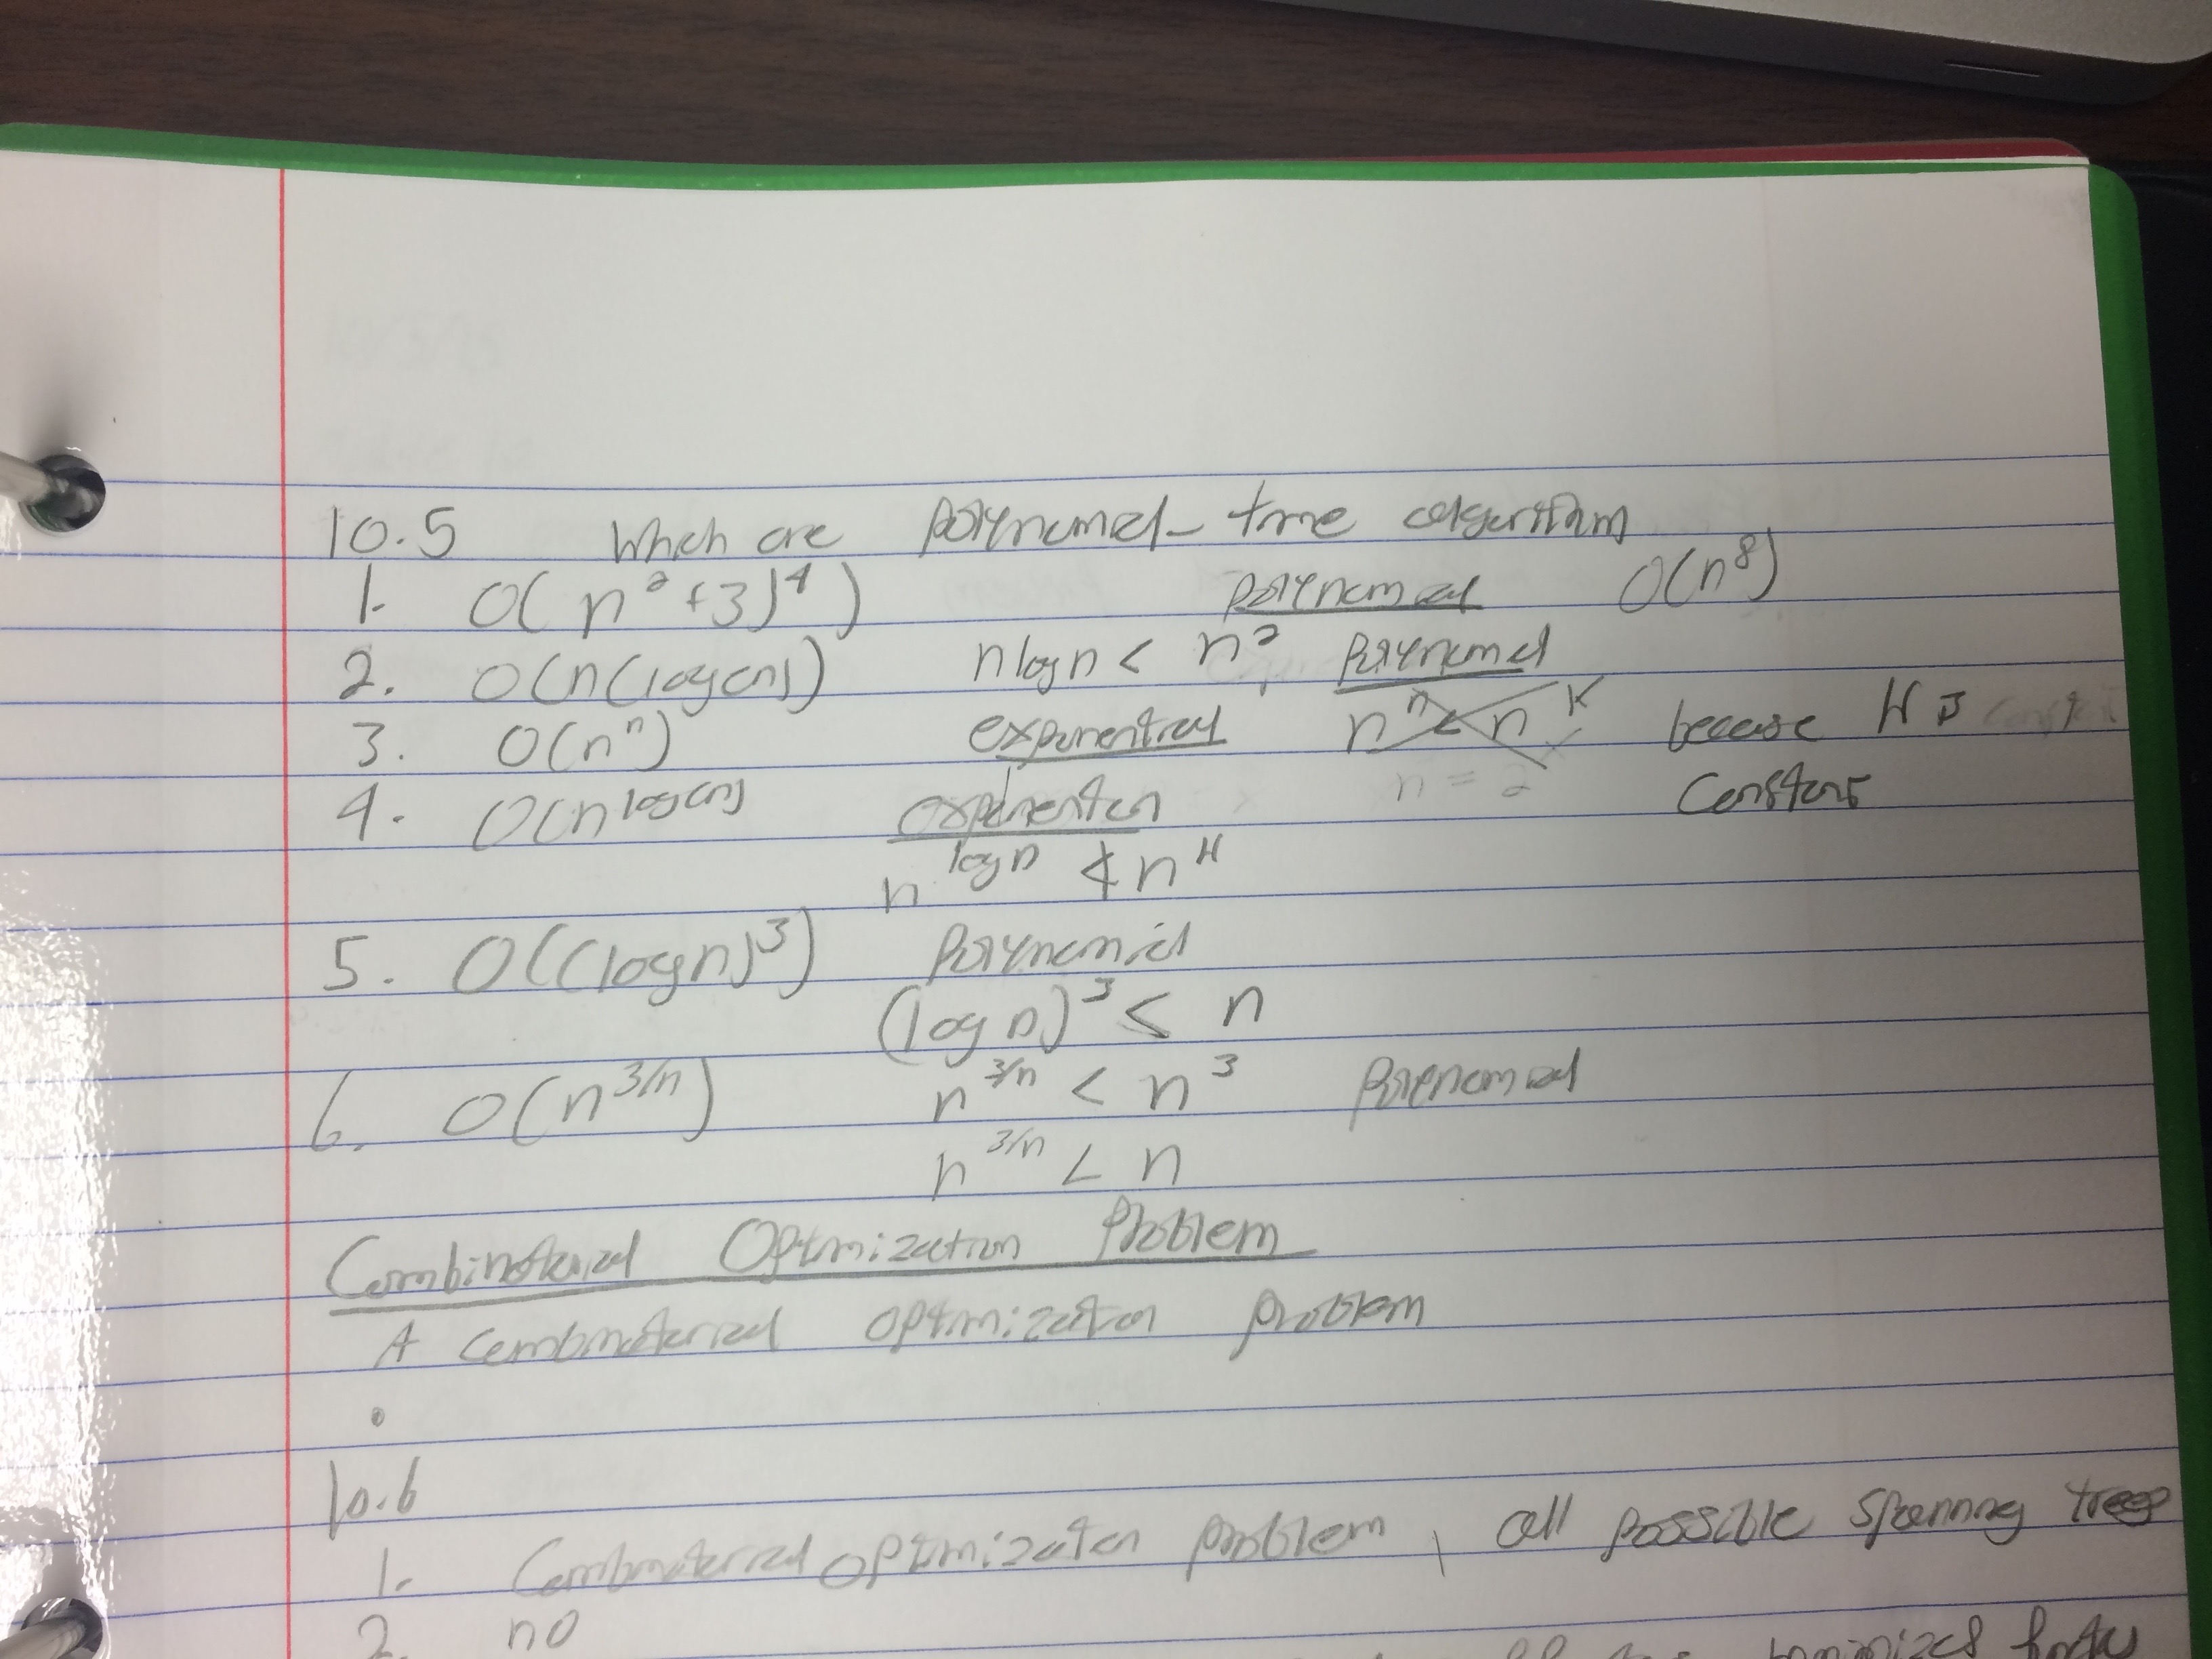 10.5 Which are polynomial-time algorithm
1. O(n²+3)⁴) polynomial O(n⁸)
2. O(n(log(n)) nlogn < n² Polynomial
3. O(nⁿ) exponential nⁿ < nᴷ because K is
4. O(n^log(n)) exponential n = 2 Constant
n^logn ≮ n^K
5. O((logn)³) Polynomial
(log n)³ ≤ n
6. O(n^3/n) n^3/n < n³ Polynomial
n^3/n < n
Combinatorial Optimization Problem
A combinatorial optimization problem
•
10.6
1. Combinatorial optimization problem, all possible spanning trees
2. no